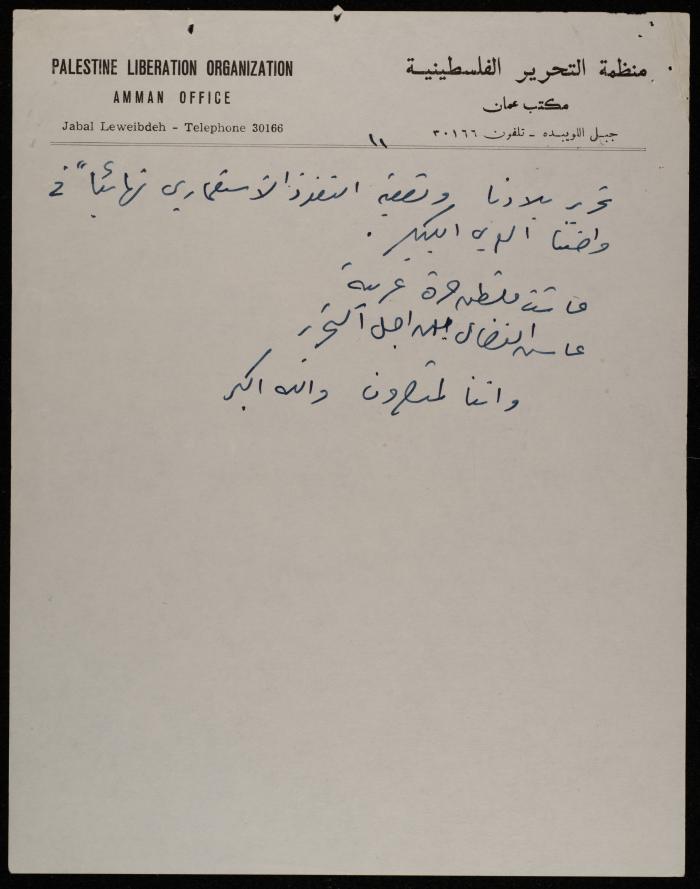 PALESTINE LIBERATION ORGANIZATION
AMMAN OFFICE
Jabal Leweibdeh - Telephone 30166
منظمة التحرير الفلسطينية
مكتب عمان
جبل اللويبده ـ تلفون ٣٠١٦٦
١١
تحرير بلادنا وتصفية النفوذ الاستعماري نهائياً في
وطننا العربي الكبير .
عاشت فلسطين حرة عربية
عاش النضال من اجل التحرير
واننا لمنتصرون والله اكبر